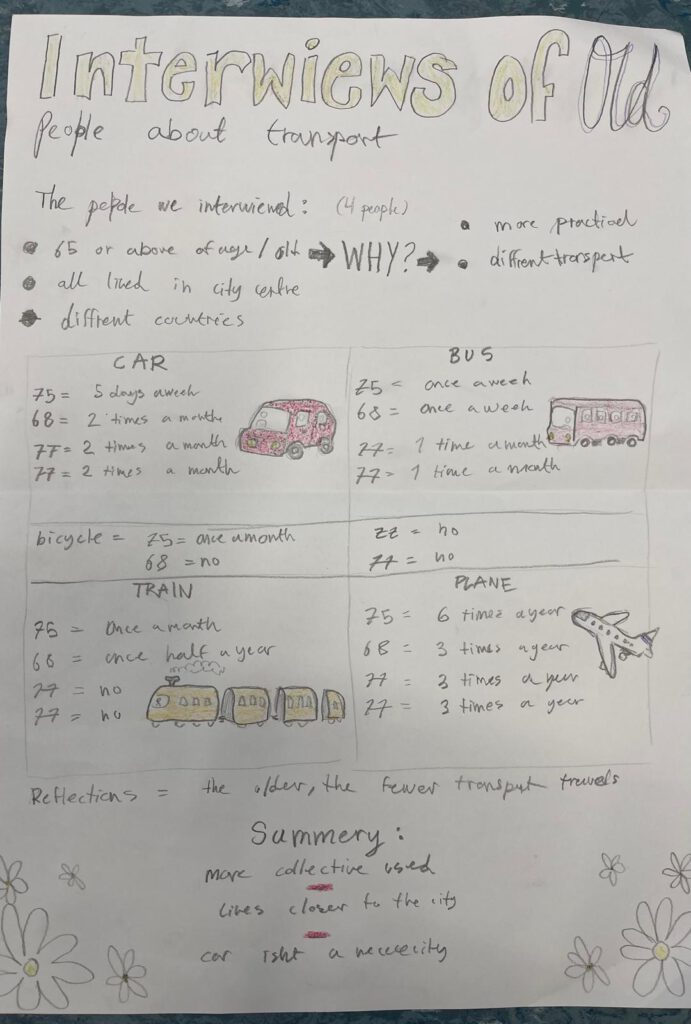 Interwiews of Old
People about transport
The people we interwiewed: (4 people)
65 or above of age / old → WHY? →
all lived in city centre
diffrent countries
more practical
diffrent transport
CAR
75 = 5 days a week
68 = 2 times a month
77 = 2 times a month
77 = 2 times a month
BUS
75 = once a week
68 = once a week
77 = 1 time a month
77 = 1 time a month
bicycle = 75 = once a month
68 = no
77 = no
77 = no
TRAIN
75 = once a month
68 = once half a year
77 = no
77 = no
PLANE
75 = 6 times a year
68 = 3 times a year
77 = 3 times a year
77 = 3 times a year
Reflections = the older, the fewer transport travels
Summery:
more collective used
lives closer to the city
car isnt a nececity